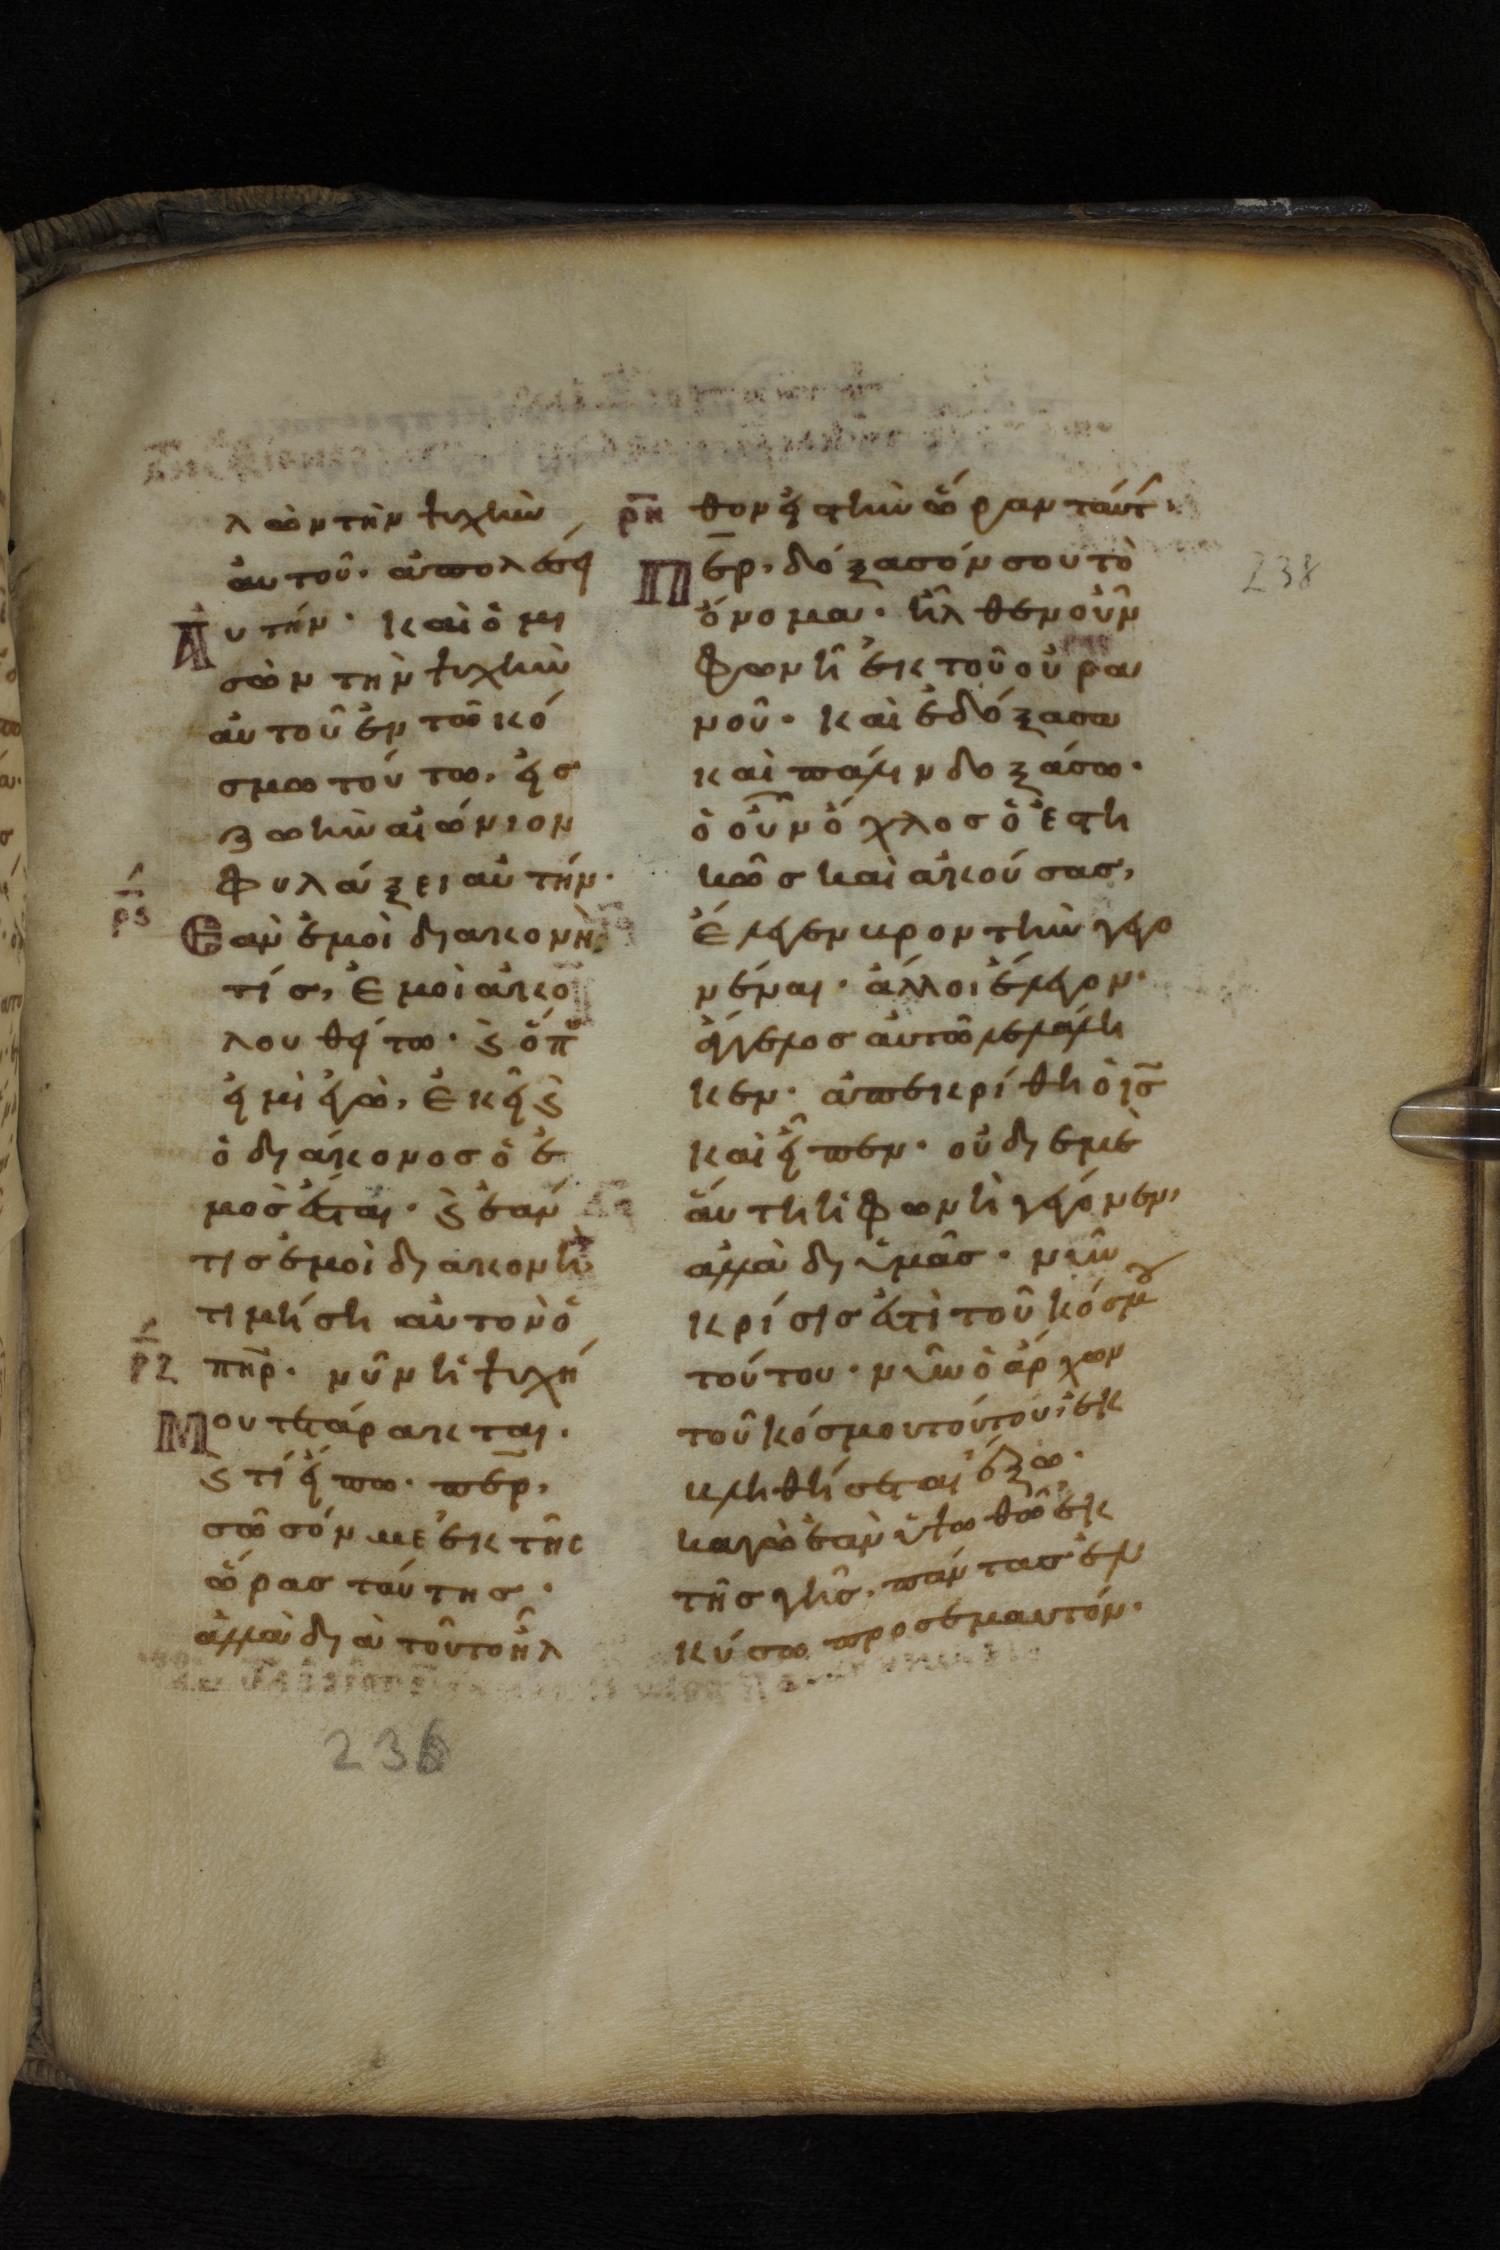 λῶν τὴν ψυχὴν
αὐτοῦ· ἀπολέσει
αὐτήν· καὶ ὁ μι
σῶν τὴν ψυχὴν
αὐτοῦ ἐν τῶ κό
σμω τούτω, εἰσ
ζωὴν αἰώνιον
φυλάξει αὐτήν·
ρ̅ϛ
Ἐὰν ἐμοὶ διακονῆ
τίσ, ἐμοὶ ἀκο
λουθείτω· ϗ ὅπ
εἰμὶ ἐγὼ, ἐκεῖ ϗ
ὁ διάκονοσ ὁ ἐ
μὸσ ἔσται· ϗ ἐάν
τισ ἐμοὶ διακονῆ
τιμήση αὐτὸν ὁ
ρ̅ζ
π̅η̅ρ· νῦν ἡ ψυχή
μου τετάρακται·
ϗ τί εἴπω· πε̅ρ,
σῶσόν με ἐκ τῆς
ὥρασ ταύτησ·
ἀλλὰ διὰ τοῦτο ἦλ
ρ̅η
θον εἰσ τὴν ὥραν ταύτ·
Πε̅ρ, δόξασόν σου τὸ
ὄνομα· ἦλθεν οὖν
φωνὴ ἐκ τοῦ οὐρα
νοῦ· καὶ ἐδόξασα
καὶ πάλιν δοξάσω·
ὁ οὖν ὄχλοσ ὁ ἑστη
κὼσ καὶ ἀκούσασ,
ἔλεγεν κρον τὴν γεγο
νέναι· ἄλλοι ἔλεγον·
ἄγγελοσ αὐτῶ λελάλη
κεν· ἀπεκρίθη ὁ ι̅σ̅
καὶ εἶπεν· οὐ δι ἐμὲ
αὕτη ἡ φωνὴ γέγονεν,
ἀλλὰ δι ὑμᾶσ· νῦν
κρίσισ ἐστὶ τοῦ κόσμου
τούτου· νῦν ὁ ἄρχων
τοῦ κόσμου τούτου ἐκ
κληθήσεται ἔξω·
καγὼ ἐὰν ὑψωθῶ ἐκ
τῆσ γῆσ, πάντασ ἑλ
κύσω προσ ἐμαυτόν·
238
236